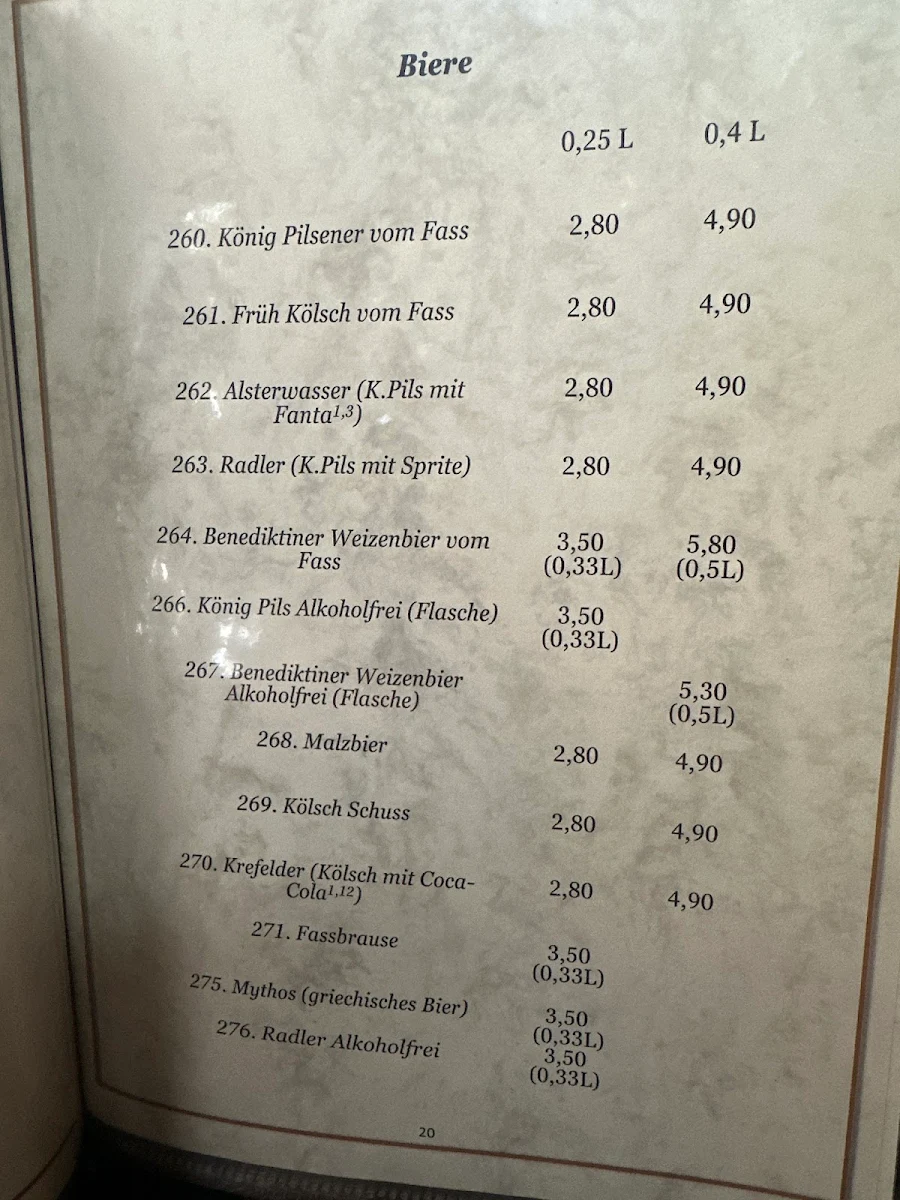 Biere
0,25 L 0,4 L
260. König Pilsener vom Fass 2,80 4,90
261. Früh Kölsch vom Fass 2,80 4,90
262. Alsterwasser (K.Pils mit 2,80 4,90
Fanta¹,³)
263. Radler (K.Pils mit Sprite) 2,80 4,90
264. Benediktiner Weizenbier vom 3,50 5,80
Fass (0,33L) (0,5L)
266. König Pils Alkoholfrei (Flasche) 3,50
(0,33L)
267. Benediktiner Weizenbier 5,30
Alkoholfrei (Flasche) (0,5L)
268. Malzbier 2,80 4,90
269. Kölsch Schuss 2,80 4,90
270. Krefelder (Kölsch mit Coca- 2,80 4,90
Cola¹,¹²)
271. Fassbrause 3,50
(0,33L)
275. Mythos (griechisches Bier) 3,50
(0,33L)
276. Radler Alkoholfrei 3,50
(0,33L)
20